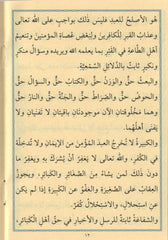 هو الأصلح للعبد فليس ذلك بواجبٍ على الله تعالى
وعذابُ القبر للكافرين ولبعض عُصاة المؤمنين وتنعيم
أهل الطاعة في القبر بما يعلمه الله ويريده وسؤالُ منكر
ونكير ثابتٌ بالدلائل السمعية.
والبعثُ حقٌّ والوزنُ حقٌّ والكتابُ حقٌّ والسؤالُ حقٌّ
والحوضُ حقٌّ والصراطُ حقٌّ والجنةُ حقٌّ والنارُ حقٌّ
وهما مخلوقتان الآن موجودتان باقيتان لا تفنيان ولا
يفنى أهلُهُما.
والكبيرةُ لا تُخرِجُ العبدَ المؤمنَ من الإيمان ولا تُدخِلُهُ
في الكفر، والله تعالى لا يغفر أن يُشرَك به ويغفر ما
دون ذلك لمن يشاءُ من الصغائر والكبائر، ويجوز
العقابُ على الصغيرة والعفوُ عن الكبيرة إذا لم يكن
عن استحلال، والاستحلالُ كُفر.
والشفاعةُ ثابتةٌ للرسل والأخيار في حقِّ أهلِ الكبائر،